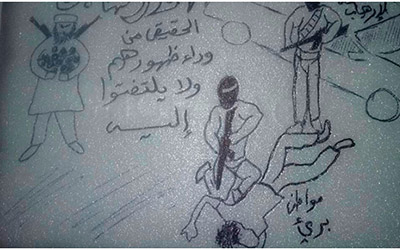 الحقيقي من
وراء ظهورهم
ولا يلتفتوا
إليه
مواطن
بريئ